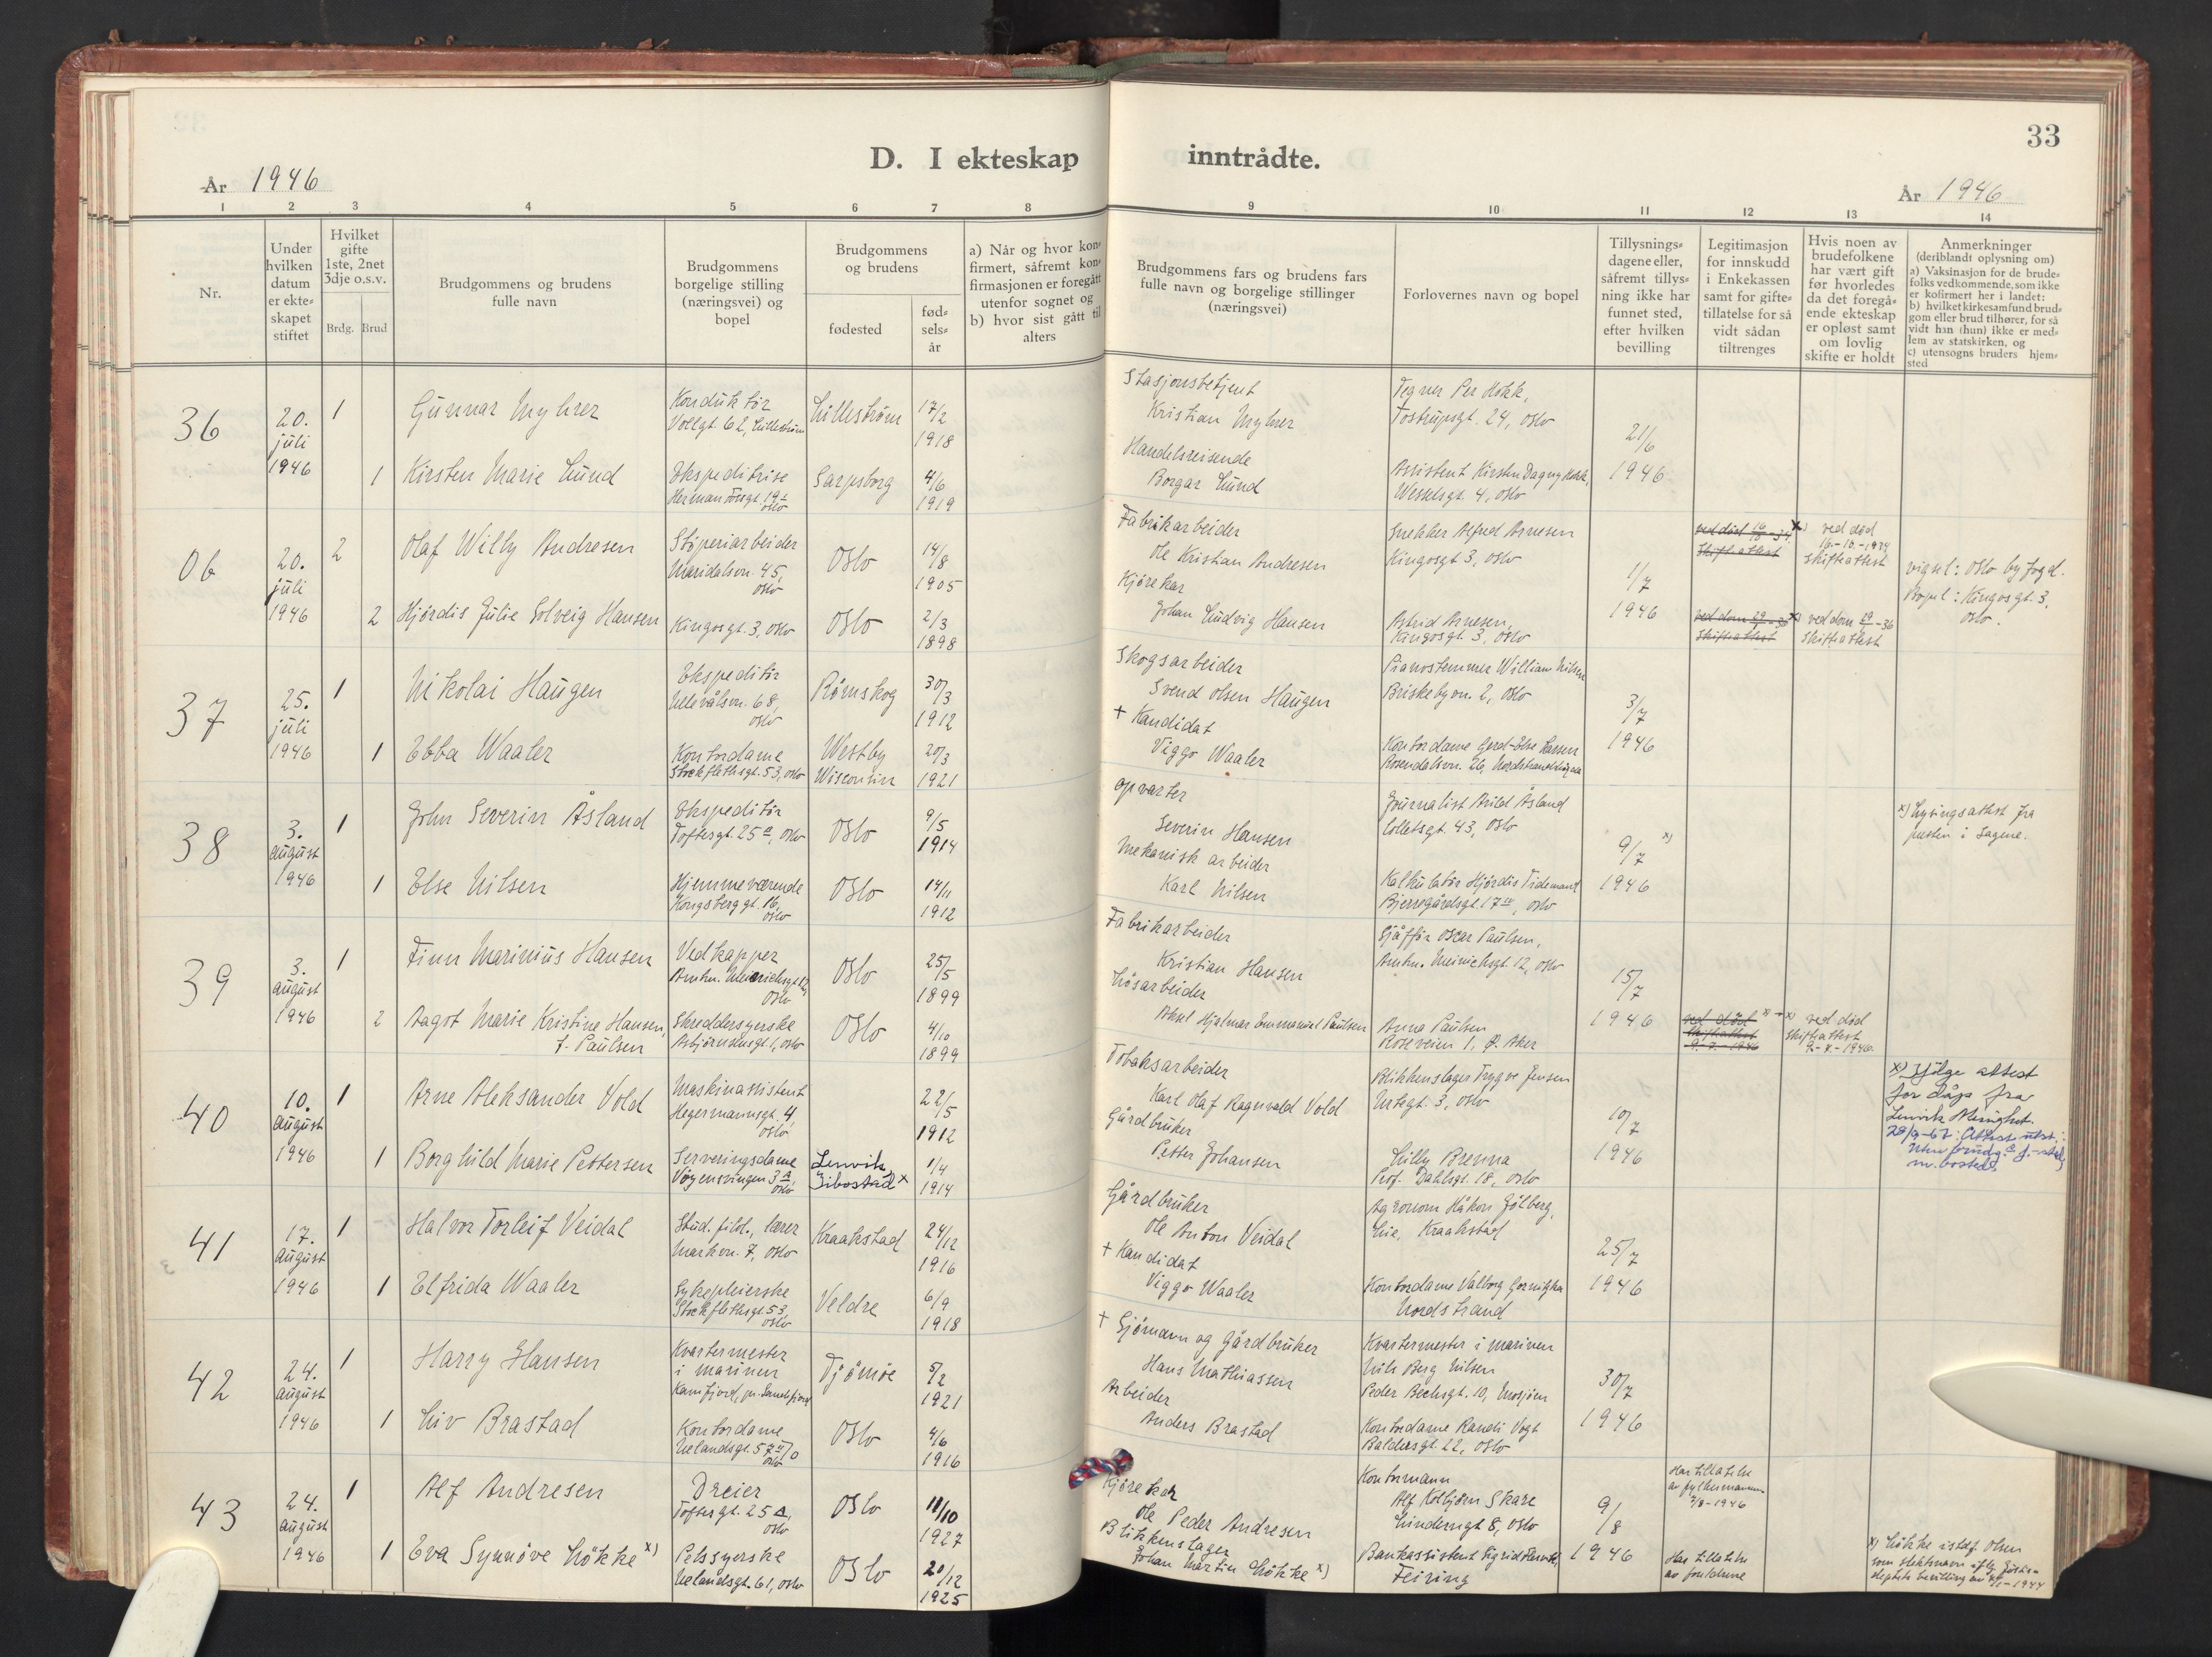 33
D. I ekteskap inntrådte.
År 1946
År 1946
1 2 3 4 5 6 7 8 9 10 11 12 13 14
Nr.
Under
hvilken
datum
er ekte-
skapet
stiftet
Hvilket
gifte
1ste, 2net
3dje o.s.v.
Brdg. Brud
Brudgommens og brudens
fulle navn
Brudgommens
borgelige stilling
(næringsvei) og
bopel
Brudgommens
og brudens
fødested
fød-
sels-
år
a) Når og hvor kon-
firmert, såfremt kon-
firmasjonen er foregått
utenfor sognet og
b) hvor sist gått til
alters
Brudgommens fars og brudens fars
fulle navn og borgelige stillinger
(næringsvei)
Forlovernes navn og bopel
Tillysnings-
dagene eller,
såfremt tillys-
ning ikke har
funnet sted,
efter hvilken
bevilling
Legitimasjon
for innskudd
i Enkekassen
samt for gifte-
tillatelse for så
vidt sådan
tiltrenges
Hvis noen av
brudefolkene
har vært gift
før hvorledes
da det foregå-
ende ekteskap
er opløst samt
om lovlig
skifte er holdt
Anmerkninger
(deriblandt oplysning om)
a) Vaksinasjon for de brude-
folks vedkommende, som ikke
er kofirmert her i landet:
b) hvilket kirkesamfund brud-
gom eller brud tilhører, for så
vidt han (hun) ikke er med-
lem av statskirken, og
c) utensogns bruders hjem-
sted
36
20.
juli
1946
1
Gunnar Myhrer
Konduktør
Vollgt. 62, Lillestrøm
Lillestrøm
17/2
1918
Stasjonsbetjent
Kristian Myhrer
Tegner Per Hokk,
Tostrupsgt. 24, Oslo
21/6
1946
1
Kirsten Marie Lund
Ekspeditrise
Herman Fossgt 19
Oslo
Sarpsborg
4/6
1919
Handelsreisende
Borgar Lund
Assistent Kirsten Dagny Hokk,
Wesselsgt. 4, Oslo
06
20.
juli
1946
2
Olaf Willy Andresen
Støperiarbeider
Maridalsvn. 45,
Oslo
Oslo
14/8
1905
Fabrikarbeider
Ole Kristian Andresen
Snekker Alfred Arnesen
Kingosgt 3, Oslo
1/7
1946
skiftattest
x) ved død
16.-10.-1934
skifteattest
vigsel: Oslo byfogd.
Bopel: Kingosgt. 3,
Oslo.
2
Hjørdis Julie Solveig Hansen
Kingosgt. 3, Oslo
Oslo
2/3
1898
Kjørekar
Johan Ludvig Hansen
Astrid Arnesen,
Kingosgt. 3, Oslo
skiftattest
skiftattest
37
25.
juli
1946
1
Nikolai Haugen
Ekspeditør
Ullevålsvn. 68,
Oslo
Rømskog
30/3
1912
Skogsarbeider
Svend Olsen Haugen
Pianostemmer William Nilsen
Briskebyvn. 2, Oslo
3/7
1946
1
Ebba Waaler
Kontordame
Stockflethsgt. 53, Oslo
Westby
Wisconsin
20/3
1921
+ Kandidat
Viggo Waaler
Kontordame Gerd-Else Larsen
38
3.
august
1946
1
John Severin Åsland
Ekspeditør
Toftesgt. 25 a, Oslo
Oslo
9/5
1914
Opvarter
Severin Hansen
Journalist Arild Åsland
Colletsgt. 43, Oslo
9/7 x)
1946
x) Lysingsattest fra
presten i Sagene.
1
Else Nilsen
Hjemmeværende
Kongsberggt. 16,
Oslo
Oslo
14/11
1912
Mekanisk arbeider
Karl Nilsen
Kalkulatør Hjørdis Tidemand
Bjerregårdsgt. 17, Oslo
39
3.
august
1946
1
Finn Marinius Hansen
Vedkapper
Amtm. Meinichsgt 12,
Oslo
Oslo
25/5
1899
Fabrikarbeider
Kristian Hansen
Sjåffør Oscar Paulsen,
Amtm. Meinichsgt. 12, Oslo
15/7
1946
2
Aagot Marie Kristine Hansen,
f. Paulsen
Skreddersyerske
Asbjørnsensgt. 1, Oslo
Oslo
4/10
1899
Løsarbeider
Aksel Hjalmar Emmanuel Paulsen
Anna Paulsen
Roseveien 1, Ø. Aker
ved død
skiftattest
9.-7.-1946
x) ved død
skiftattest
9.-7.-1946.
40
10.
august
1946
1
Arne Aleksander Vold
Maskinassistent
Hegermannsgt. 4,
Oslo
22/5
1912
Tobaksarbeider
Karl Olaf Ragnvald Vold
Blikkenslager Trygve Jensen
Urtegt. 3, Oslo
10/7
1946
x) Ifølge attest
for dåp fra
Lenvik Menighet.
1
Borghild Marie Pettersen
Serveringsdame
Vøyensvingen 3 a,
Oslo
Lenvik,
Gibostad x
1/4
1914
Gårdbruker
Petter Johansen
Lilly Brenna
Prof. Dahlsgt. 18, Oslo
41
17.
august
1946
1
Halvor Torleif Veidal
Stud. filol., lærer
Markvn. 7, Oslo
Kraakstad
24/12
1916
Gårdbruker
Ole Anton Veidal
Agronom Håkon Gölberg,
Lie, Kraakstad
25/7
1946
1
Elfrida Waaler
Sykepleierske
Stockflethsgt. 53,
Oslo
Veldre
6/9
1918
+ Kandidat
Viggo Waaler
Kontordame Valborg Gornitzka
Nordstrand
42
24.
august
1946
1
Harry Hansen
Kvartermester
i marinen
Tjømøe
5/2
1921
+ Sjømann og Gårdbruker
Hans Mathiassen
Kvartermester i marinen
Nils Berg Nilsen
Peder Bechsgt. 10, Mosjøen
30/7
1946
1
Liv Brastad
Kontordame
Oslo
4/6
1916
Arbeider
Anders Brastad
Kontordame Randi Vogt
Baldersgt. 22, Oslo
43
24.
august
1946
1
Alf Andresen
Dreier
Toftesgt. 25 a,
Oslo
Oslo
11/10
1927
Kjørekar
Ole Peder Andresen
Kontormann
Alf Kolbjørn Skare
Lindernsgt 8, Oslo
9/8
1946
Har tillatelse
av fylkesmannen
7/8-1946
1
Eva Synnøve Løkke x)
Pelssyerske
Uelandsgt. 61, Oslo
Oslo
20/12
1925
Blikkenslager
Johan Martin Løkke x)
Feiring
Har tillatelse
av foreldrene
x) Løkke istdf Olsen